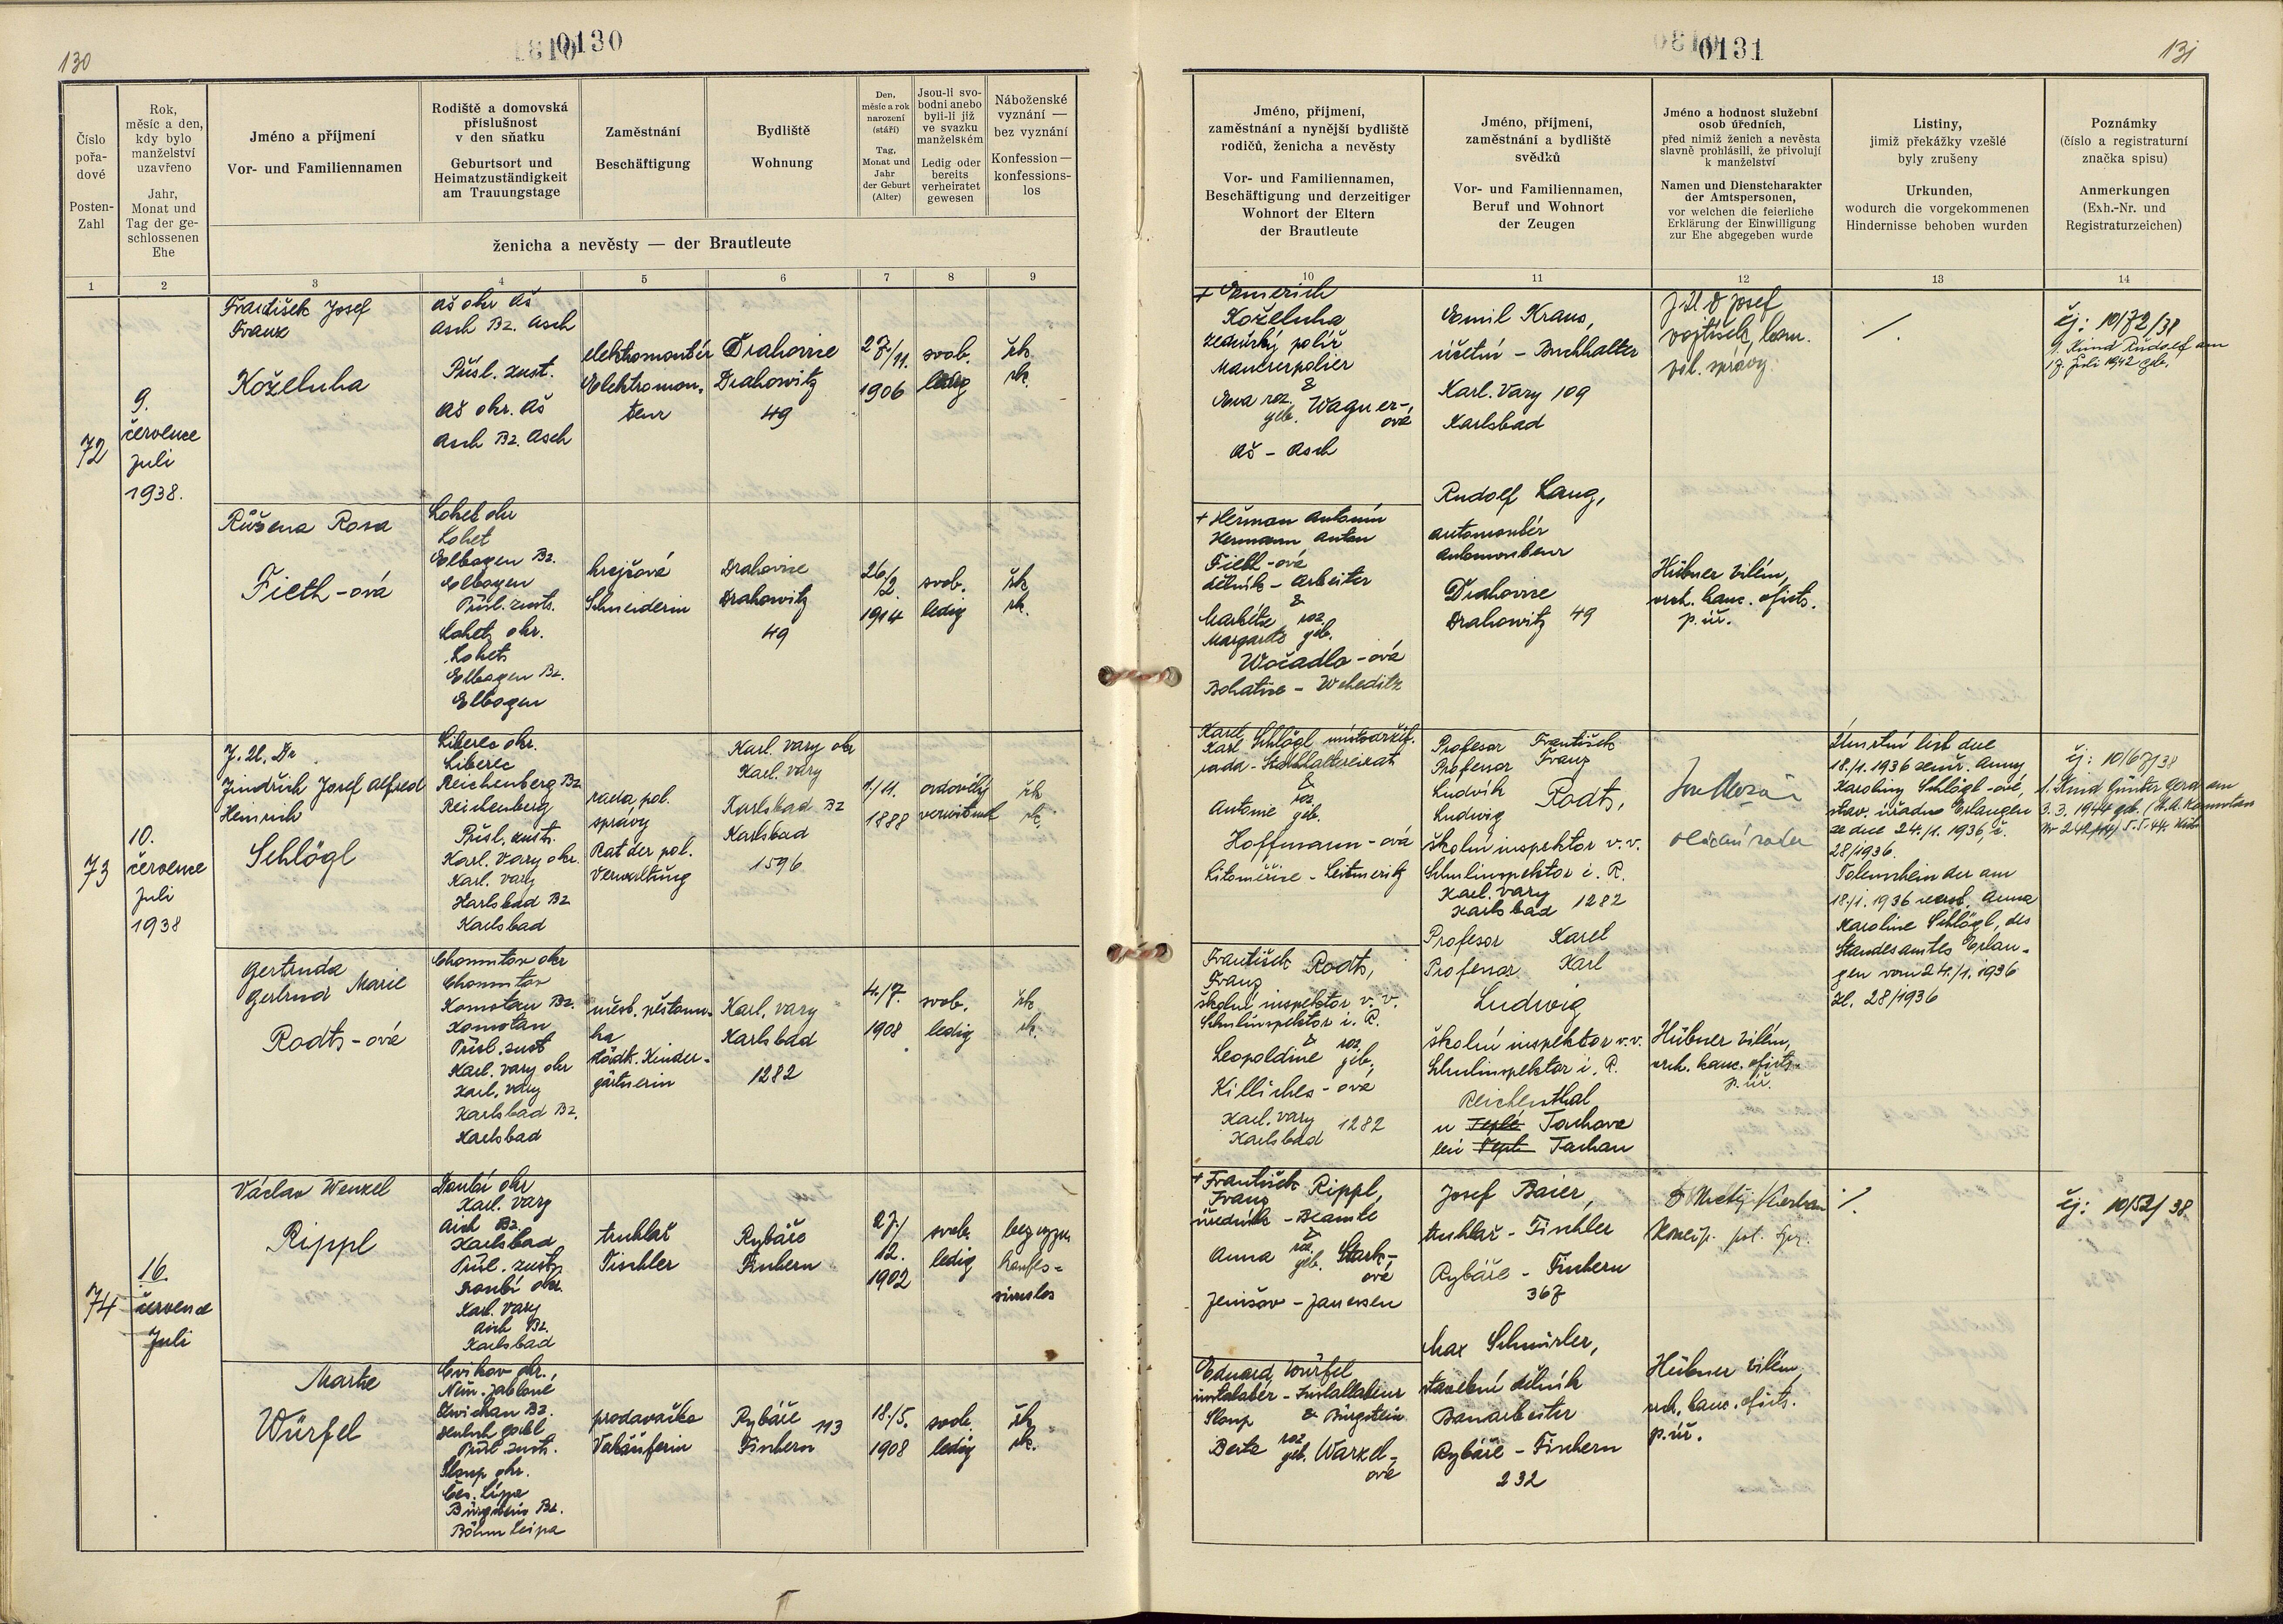 130
0130
Číslo
pořa-
dové
Posten-
Zahl
Rok,
měsíc a den,
kdy bylo
manželství
uzavřeno
Jahr,
Monat und
Tag der ge-
schlossenen
Ehe
Jméno a příjmení
Vor- und Familiennamen
Rodiště a domovská
příslušnost
v den sňatku
Geburtsort und
Heimatzuständigkeit
am Trauungstage
Zaměstnání
Beschäftigung
Bydliště
Wohnung
Den,
měsíc a rok
narození
(stáří)
Tag,
Monat und
Jahr
der Geburt
(Alter)
Jsou-li svo-
bodni anebo
byli-li již
ve svazku
manželském
Ledig oder
bereits
verheiratet
gewesen
Náboženské
vyznání —
bez vyznání
Konfession —
konfessions-
los
ženicha a nevěsty — der Brautleute
1 2 3 4 5 6 7 8 9
72
9.
července
Juli
1938.
František Josef
Franz
Koželuha
Aš okr Aš
Asch Bz. Asch
Přísl. zust.
Aš okr. Aš
Asch Bz. Asch
elektromontér
Elektromon-
teur
Drahovice
Drahowitz
49
27/11.
1906
svob.
ledig
řk.
rk.
Růžena Rosa
Fieth-ová
Loket okr
Loket
Elbogen Bz.
Elbogen
Přísl. zust.
Loket okr.
Loket
Elbogen Bz.
Elbogen
krejčová
Schneiderin
Drahovice
Drahowitz
49
26/2.
1914
svob.
ledig
řk.
rk.
73
10.
července
Juli
1938
J. U. Dr.
Jindřich Josef Alfred
Heinrich
Schlögl
Liberec okr.
Liberec
Reichenberg Bz
Reichenberg
Přísl. zust.
Karl. Vary okr.
Karl. Vary
Karlsbad Bz
Karlsbad
rada pol.
správy
Rat der pol.
Verwaltung
Karl. Vary okr
Karl. Vary
Karlsbad Bz
Karlsbad
1596
1/11.
1888
ovdovělý
verwitwet
řk
rk.
Gertruda
Gertrud Marie
Rodts-ová
Chomutov okr
Chomutov
Komotau Bz.
Komotau
Přísl. zust
Karl. Vary okr
Karl. Vary
Karlsbad Bz.
Karlsbad
měst. pěstoun-
ka
städt. Kinder-
gärtnerin
Karl. Vary
Karlsbad
1282
4./7.
1908
svob.
ledig
řk
rk.
74
16.
července
Juli
Václav Wenzel
Rippl
Doubí okr
Karl. Vary
Aich Bz.
Karlsbad
Přísl. zust.
Doubí okr.
Karl. Vary
Aich Bz.
Karlsbad
truhlář
Tischler
Rybáře
Fischern
27/
12.
1902
svob.
ledig
bez vyzn.
konfes-
sionslos
Marta
Würfel
Cvikov okr.,
Něm. Jablonné
Zwickau Bz.
Deutsch Gabel
Přísl. zust.
Sloup okr.
Čes. Lípa
Bürgstein Bz.
Böhm Leipa
prodavačka
Verkäuferin
Rybáře 113
Fischern
18./5.
1908
svob.
ledig
řk
rk.
0131
131
Jméno, příjmení,
zaměstnání a nynější bydliště
rodičů, ženicha a nevěsty
Vor- und Familiennamen,
Beschäftigung und derzeitiger
Wohnort der Eltern
der Brautleute
Jméno, příjmení,
zaměstnání a bydliště
svědků
Vor- und Familiennamen,
Beruf und Wohnort
der Zeugen
Jméno a hodnost služební
osob úředních,
před nimiž ženich a nevěsta
slavně prohlásili, že přivolují
k manželství
Namen und Dienstcharakter
der Amtspersonen,
vor welchen die feierliche
Erklärung der Einwilligung
zur Ehe abgegeben wurde
Listiny,
jimiž překážky vzešlé
byly zrušeny
Urkunden,
wodurch die vorgekommenen
Hindernisse behoben wurden
Poznámky
(číslo a registraturní
značka spisu)
Anmerkungen
(Exh.-Nr. und
Registraturzeichen)
10 11 12 13 14
+ Emerich
Koželuha
zednický polír
Maurerpolier
&
Eva roz.
geb. Wagner-
ová
Aš - Asch
Emil Kraus,
účetní - Buchhalter
Karl. Vary 109
Karlsbad
Rudolf Lang,
automontér
Automonteur
Drahovice
Drahowitz 49
J U D Josef
Vojtíšek, kom.
pol. správy
Hübner Vilém,
vrch. kanc. oficts.
p. úř.
čj: 10/72/38
1. Kind Rudolf am
17. Juli 1942 geb.
+ Heřman Antonín
Hermann Anton
Fieth-ová
dělník - Arbeiter
&
Markéta roz.
Margarete geb.
Wočadlo-ová
Bohatice - Weheditz
Karel
Karl Schlögl místodržit.
rada - Statthaltereirat
&
Antonie roz
geb.
Hoffmann-ová
Litoměřice - Leitmeritz
Profesor František
Professor Franz
Ludvík
Ludwig Rodts,
školní inspektor v. v.
Schulinspektor i. R.
Karl. Vary
Karlsbad 1282
Profesor Karel
Professor Karl
Ludwig
školní inspektor v. v.
Schulinspektor i. R.
Reichenthal
u Teplé Tachova
bei Tepl Tachau
vládní rada
Hübner Vilém,
vrch. kanc. oficts.
p. úř.
Úmrtní list dne
18./1. 1936 zemř. Anny
Karoliny Schlögl-ové,
stav. úřadu Erlangen
ze dne 24./1. 1936, č.
28/1936.
Totenschein der am
18./1. 1936 verst. Anna
Karoline Schlögl, des
Standesamtes Erlan-
gen vom 24./1. 1936
Zl. 28/1936
čj: 10/67/38
1. Kind Günter Gerd am
3. 3. 1944 geb. (St. A. Komotau
Nr 242/44) 5. 5. 44.
František
Franz Rodts,
školní inspektor v. v.
Schulinspektor i. R.
&
Leopoldine roz
geb.
Killiches-ová
Karl. Vary
Karlsbad 1282
+ František
Franz Rippl,
úředník - Beamte
&
Anna roz.
geb. Stark-
ová
Jenišov - Janessen
Josef Baier,
truhlář - Tischler
Rybáře - Fischern
367
Max Schnürler,
stavební dělník
Bauarbeiter
Rybáře - Fischern
232
Hübner Vilém,
vrch. kanc. oficts.
p. úř.
čj: 10/52/38
Eduard Würfel
instalatér - Installateur
Sloup & Bürgstein
Berta roz
geb. Warzel-
ová